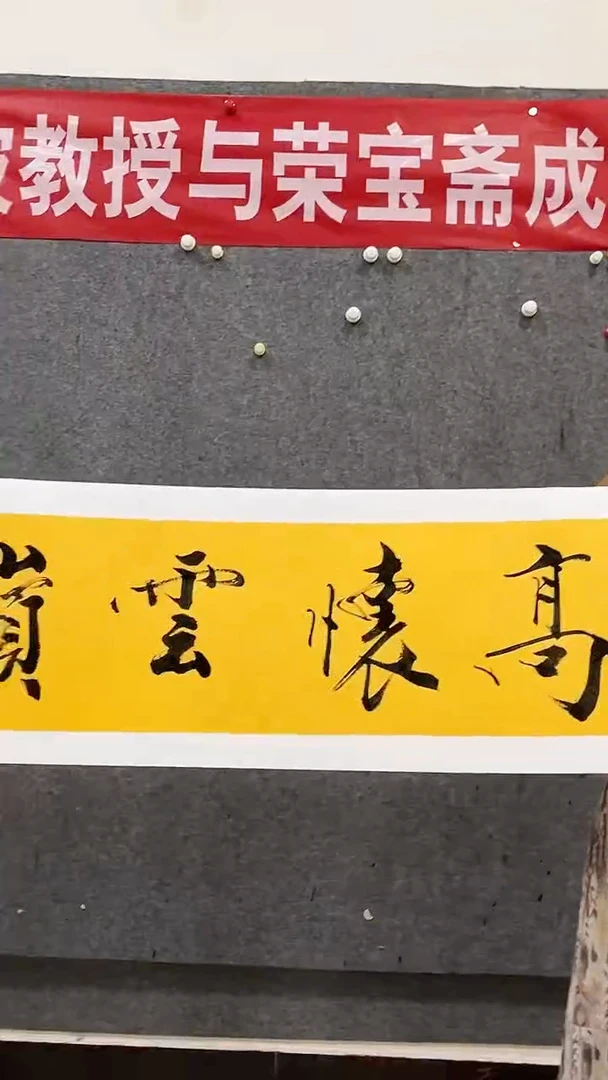 教授与荣宝斋成
高懷雲